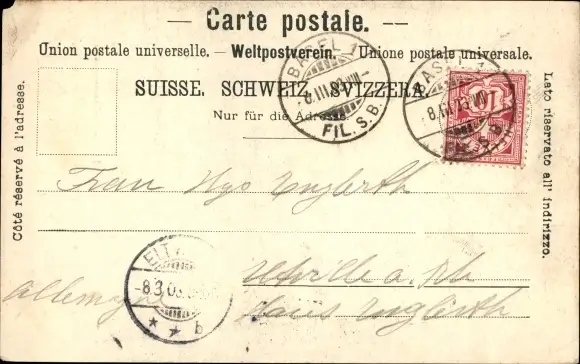 Carte postale.
Union postale universelle. — Weltpostverein. — Unione postale universale.
SUISSE. SCHWEIZ. SVIZZERA.
Nur für die Adresse.
Côté réservé à l'adresse.
Lato riservato all' indirizzo.
BASEL 1
8.III.03.VIII-
FIL. S.B.
BASEL 1
8.III.03.VIII
10
Frau
ELTV
-8.3.03.
* * b
a. Rh
Allemagne
Haus